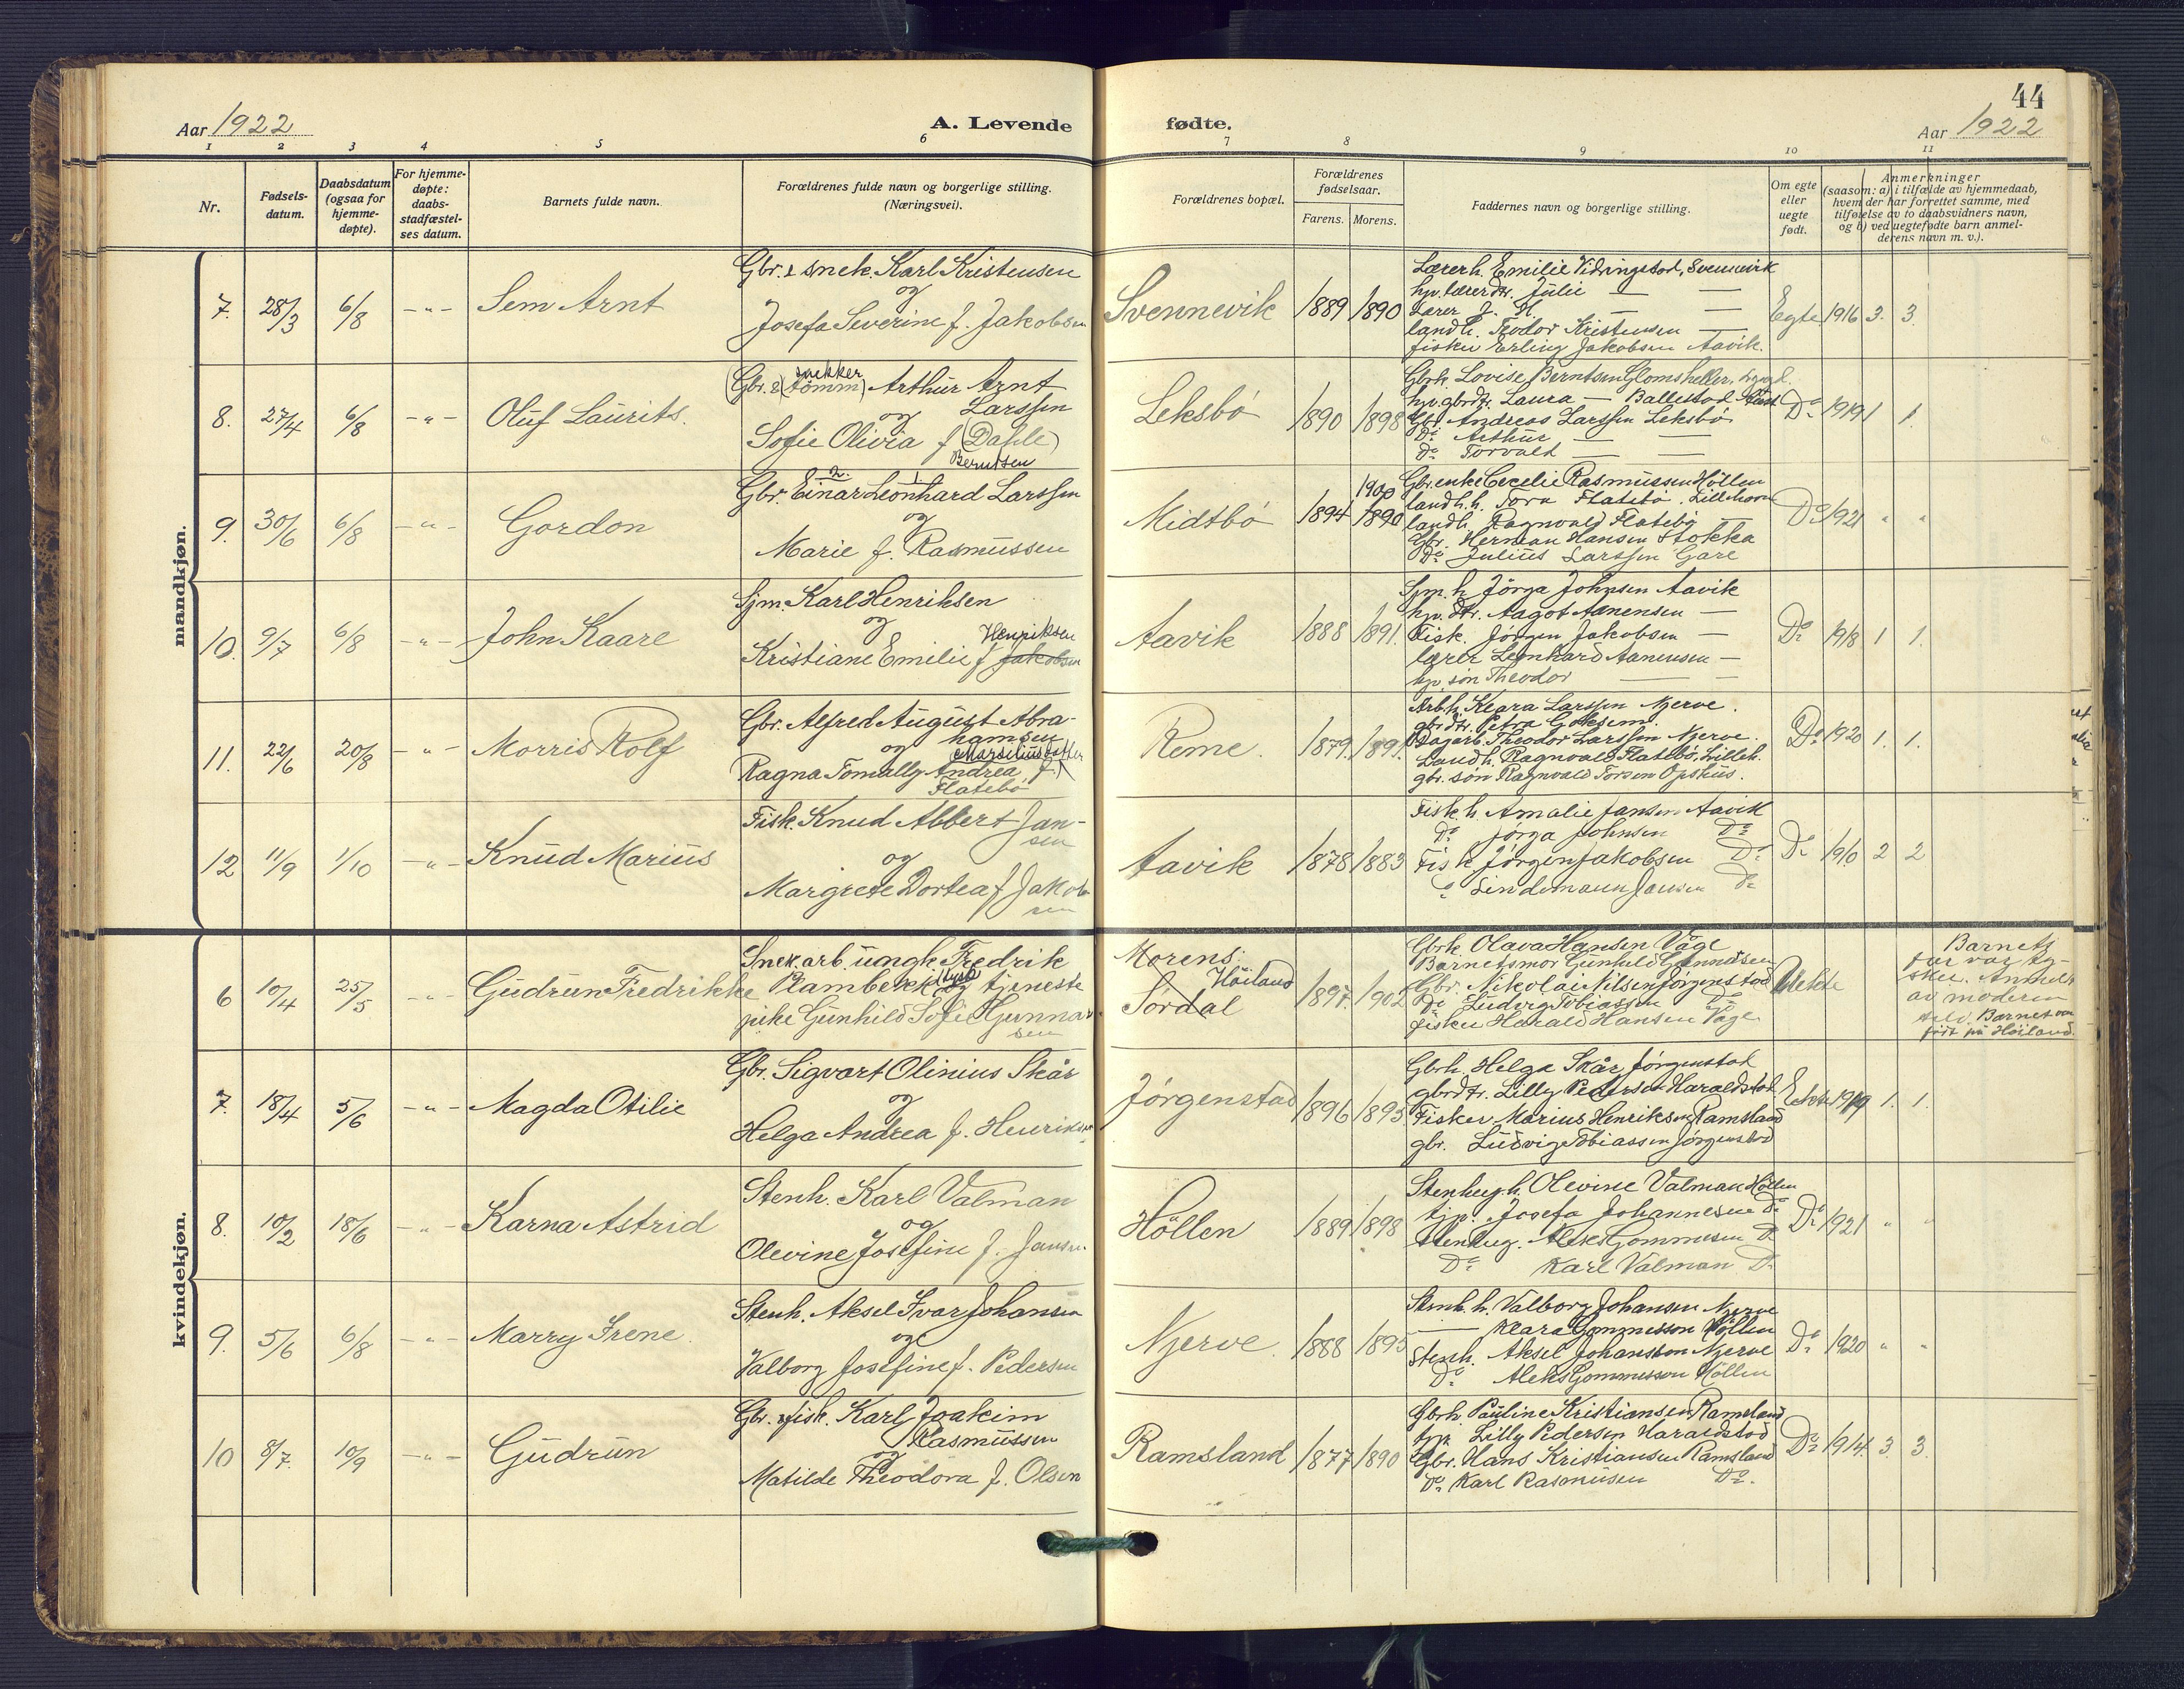 44
Aar 1922
A. Levende fødte.
Aar 1922
1 2 3 4 5 6 7 8 9 10 11
Nr.
Fødsels-datum.
Daabsdatum (ogsaa for hjemme-døpte).
For hjemme-døpte: daabs-stadfæstel-ses datum.
Barnets fulde navn.
Forældrenes fulde navn og borgerlige stilling. (Næringsvei).
Forældrenes bopæl.
Forældrenes fødselsaar.
Farens. Morens.
Faddernes navn og borgerlige stilling.
Om egte eller uegte født.
Anmerkninger
(saasom: a) i tilfælde av hjemmedaab, hvem der har forrettet samme, med tilføielse av to daabsvidners navn, og b) ved uegtefødte barn anmel-derens navn m. v.).
mandkjøn.
7. 28/3 6/8 -"- Sem Arnt
Gbr. & snek. Karl Kristensen
og
Josefa Severine f. Jakobsen
Svennevik 1889 1890
Lærerh. Emilie Vidringstad, Svennevik
hjv. lærerdtr. Julie — —
Lærer J. H. — —
landh. Teodor Kristensen —
fisker Erling Jakobsen Aavik.
Egte 1916 3. 3.
8. 27/4 6/8 -"- Oluf Laurits.
(Gbr. & (tømm) snekker Arthur Arnt
og Larssen
Sofie Olivia f (Dahle)
Berntsen
Leksbö 1890 1898
Gbrh. Lovise Berntsen Glomsheller,
hjv. gbrdtr. Laura — Ballestad
Gbr. Andreas Larssen Leksbö
Do Arthur — —
Do Torvald — —
Do 1919 1 1.
9. 30/6 6/8 -"- Gordon
2. 1.
Gbr. Einar Leonhard Larssen
og
Marie f. Rasmussen
Midtbö 1894 1900 1890
Gbr. enke Cecelie Rasmussen Höllen
landh. h. Tora Flatebö, Lillehavn
landh. Ragnvald Flatebö —
Gbr. Herman Hansen Stokka
Do Julius Larssen Gare
Do 1921 " "
10. 9/7 6/8 -"- John Kaare
Sjm. Karl Henriksen
og
Henriksen
Kristiane Emilie f Jakobsen
Aavik 1888 1891.
Sjm. h. Jörga Johnsen Aavik
hjv. dtr. Aagot Aanensen —
Fisk. Jörgen Jakobsen —
lærer Leonhard Aanensen —
hjv. sön Theodor — —
Do 1918 1 1.
11. 22/6 20/8 -"- Morris Rolf
Gbr. Alfred August Abra-
og hamsen
Marseliusdatter
Ragna Tomally Andrea, f.
Flatebö
Reme. 1879. 1891.
Arbh. Klara Larssen Njerve.
gbrdtr. Petra Goksem.
Dagarb. Theodor Larssen Njerve.
Landh. Ragnvald Flatebö, Lilleh.
gbr. sön Ragnvald Torsen Opshus.
Do 1920 1. 1.
12 11/9 1/10 -"- Knud Marius
Fisk. Knud Albert Jan-
sen
og
Margrete Dortea f Jakob-
sen
Aavik 1878 1883
Fisk. h. Amalie Jansen Aavik
Do Jörga Johnsen Do
Fisk Jörgen Jakobsen Do
Do Lindemann Jansen Do
Do 1910 2 2
kvindekjøn.
6 10/4 25/5 -"- Gudrun Fredrikke
Snek. arb. ungk. Fredrik
Plambeck tysk og tjeneste
pike Gunhild Sofie Gunnar
sen
Morens:
Höiland
Sördal
1897. 1902
Gbrh. Olava Hansen Våge
Barnets mor Gunhild Gunnarsen
Gbr. Nikolai Nilsen Jörgenstad
Do Ludvig Tobiassen Do
fisker Harald Hansen Våge
Uekte
Barnets
far var ty-
sker. Anmeldt
av moderen
selv. Barnet var
född på Höiland.
7. 18/4 5/6 -"- Magda Otilie
Gbr. Sigvart Olinius Skår
og
Helga Andrea f. Henriksen
Jörgenstad 1896 1893
Gbrh. Helga Skår Jörgenstad
gbrdtr. Lilly Pedersen Haraldstad
Fisker Marius Henriksen Ramsland
gbr. Ludvig Tobiassen Jörgenstad
Ekte 1919 1. 1.
8. 10/2 18/6 -"- Karna Astrid
Stenh. Karl Valman
og
Olevine Josefine f. Jansen
Höllen 1889 1898
Stenhug. h. Olevine Valman Höllen
tjp. Josefa Johannesen Do
Stenhug. Aleks Gommesen Do
Do Karl Valman Do
Do 1921 " "
9. 5/6 6/8 -"- Marry Irene
Stenh. Aksel Ivar Johansen
og
Valborg Josefine f. Pedersen
Njerve. 1888 1895
Stenh. h. Valborg Johansen Njerve
— Klara Gommesson Höllen
Stenh. Aksel Johansson Njerve
Do Aleks Gommesson Höllen
Do 1920 " "
10 8/7 10/9 -"- Gudrun
Gbr. & fisk. Karl Joakim
Rasmussen
og
Matilde Theodora f. Olsen
Ramsland 1877 1890
Gbrh. Pauline Kristiansen Ramsland
tjp. Lilly Pedersen Haraldstad
Gbr. Hans Kristiansen Ramsland
Do Karl Rasmussen Do.
Do 1914 3. 3.